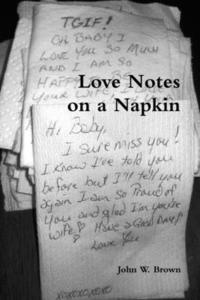 TGIF!
OH BABY I
LOVE YOU SO MUCH
AND I AM SO
HAPPY
YOUR WIFE, I
Love Notes
on a Napkin
Hi Baby,
I sure miss you!
I know I've told you
before but I'll tell you
again I am so Proud of
You and glad I'm you're
wife Have a Good Day!
Love You
John W. Brown
xoxoxoxoxo